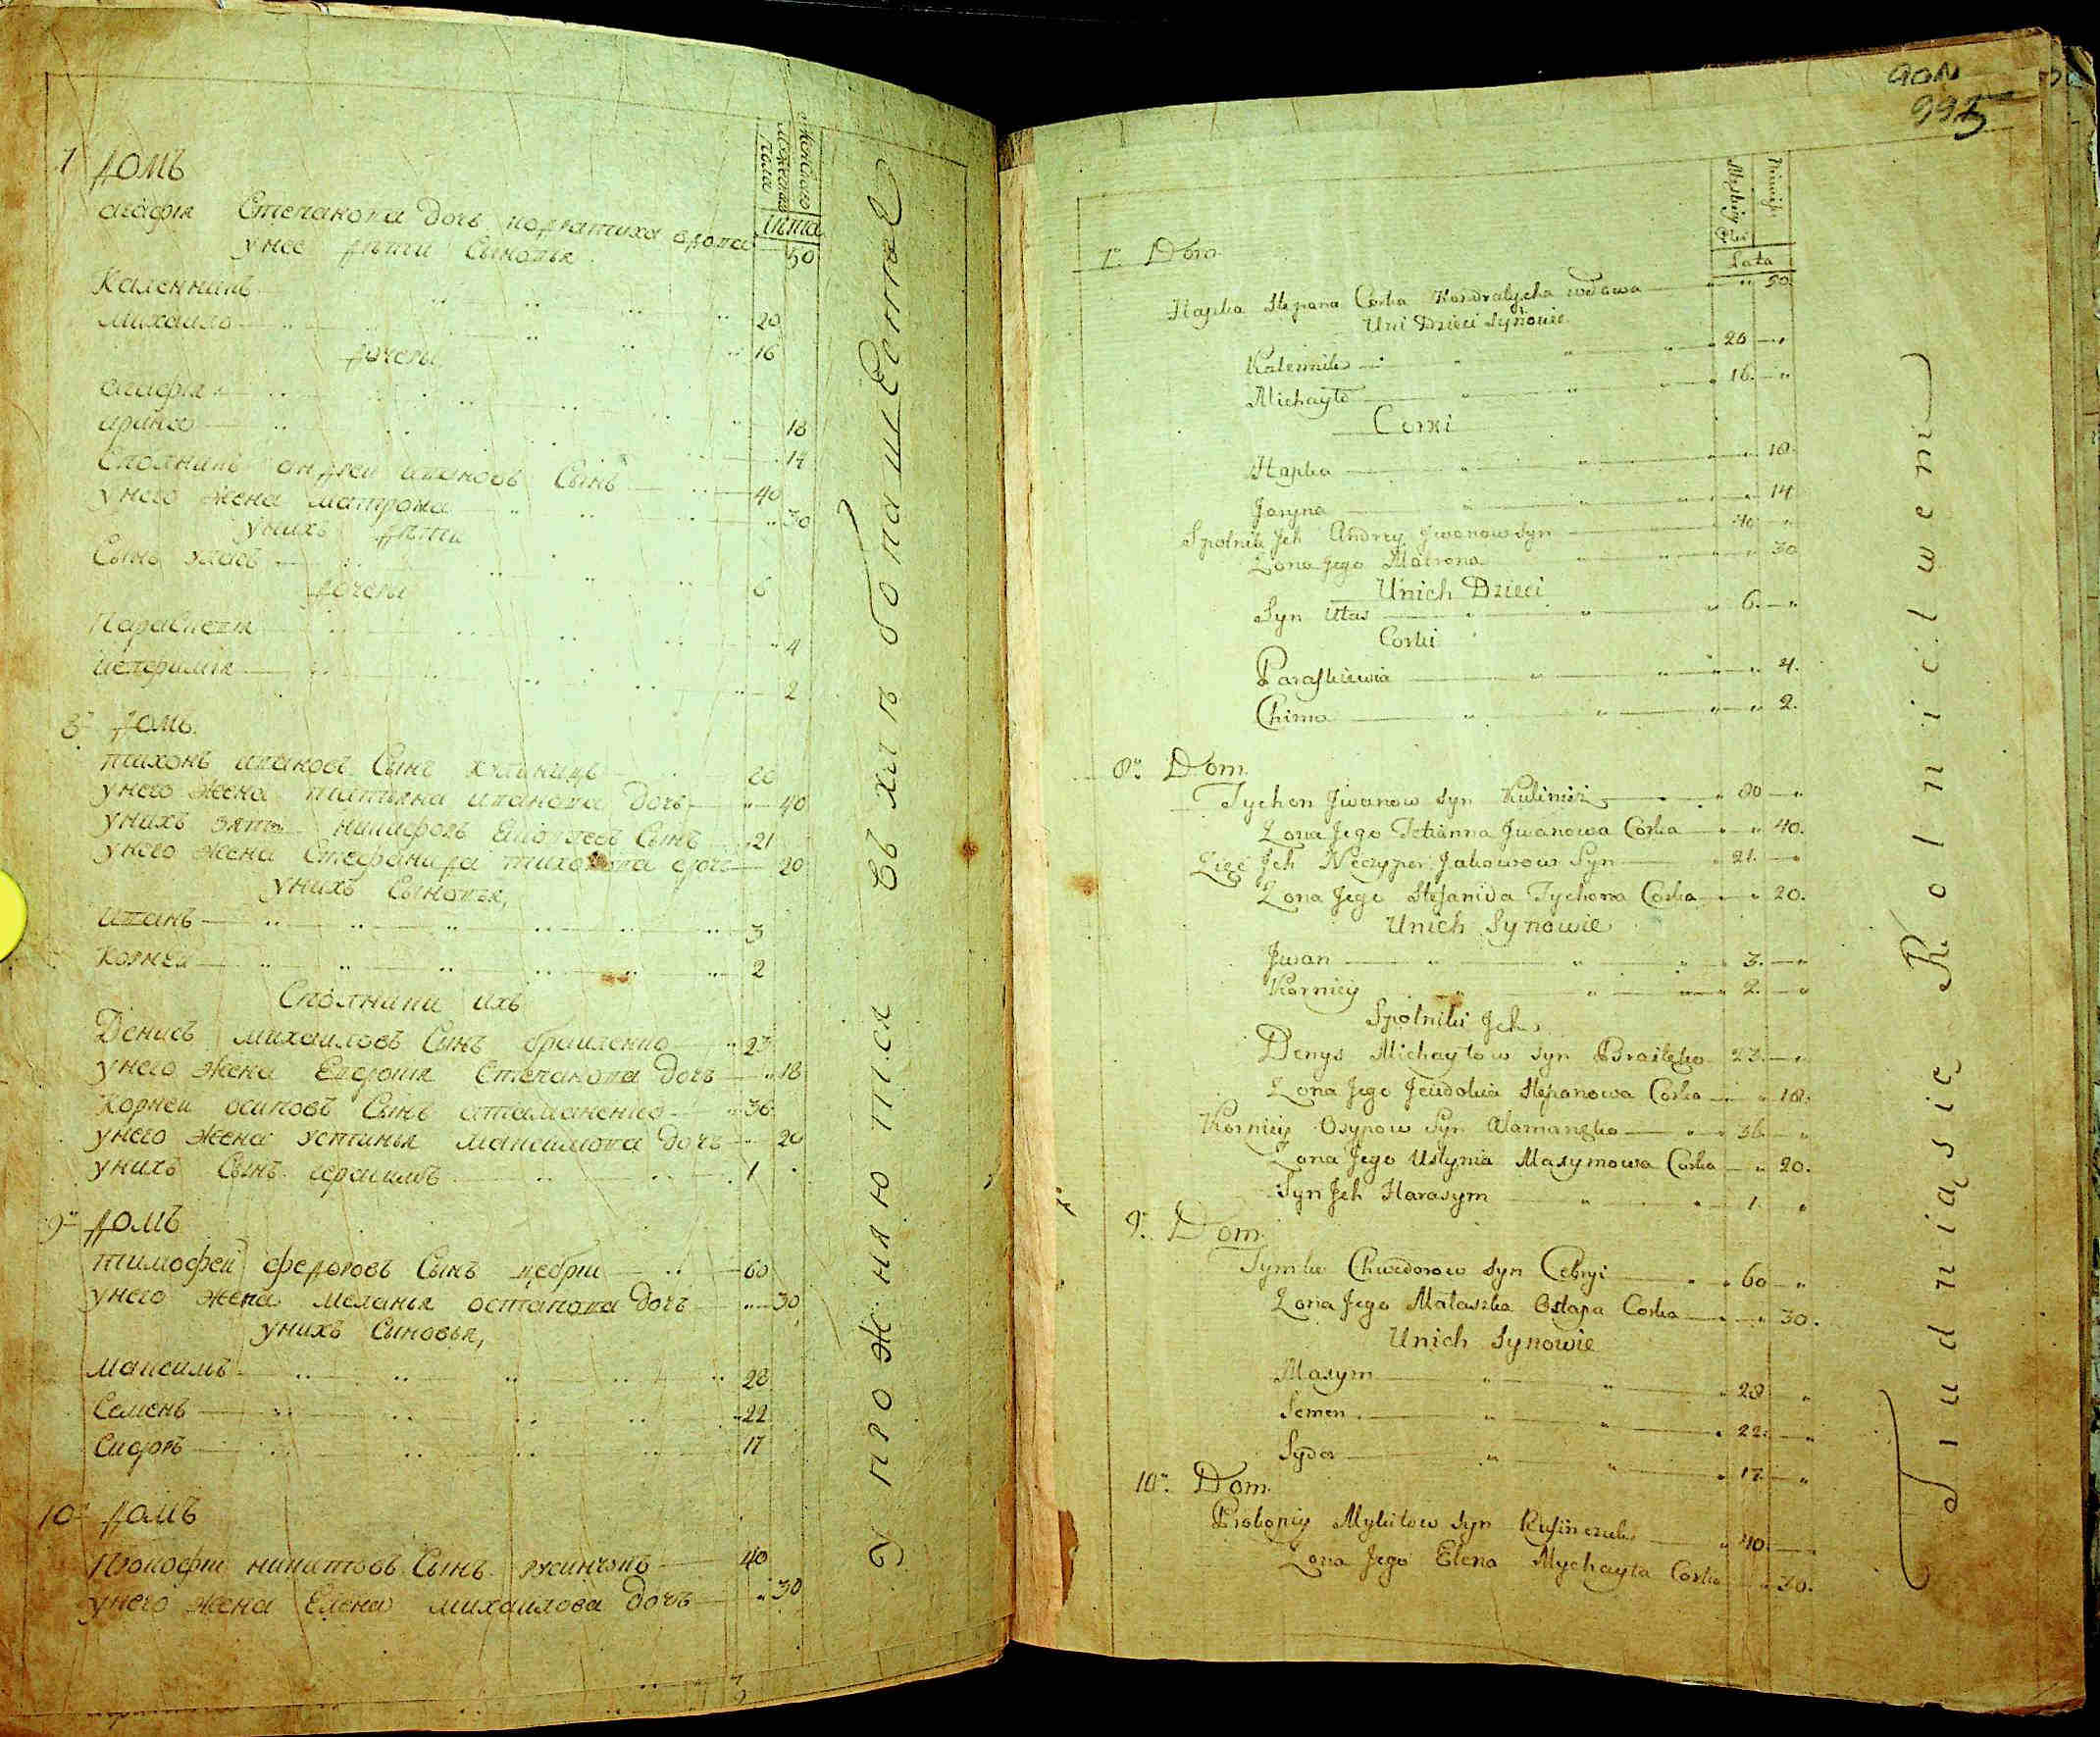 7 домъ
Женска
Мужеска
пола
Лѣта
агафия Степанова дочь кодратиха вдова 50
унее дѣти Сыновья
Каленникъ 20
михаило 16
дочери
агафия 18
ирина 14
Сполникъ андреи ивановъ Сынъ 40
унего жена матрона 30
унихъ дѣти
Сынъ уласъ 6
дочери
Параскевия 4
8 домъ
тихонъ ивановъ Сынъ кулиничъ 80
унего жена татьяна иванова дочь 40
унихъ зять никифоръ Сынъ 21
унего жена Стефанида тихонова дочь 20
унихъ Сыновья,
иванъ 3
Корнеи 2
Сполники ихъ
Денисъ михаиловъ Сынъ браиленко 23
унего жена Евдокия Степанова дочь 18
Корнеи осиповъ Сынъ атаманенко 36
унего жена устинья максимова дочь 20
унихъ Сынъ герасимъ 1
9 домъ
тимофеи федоровъ Сынъ цебрии 60
унего жена меланья остапова дочь 30
унихъ Сыновья,
максимъ 28
Семенъ 22
Сидоръ 17
10 домъ
Прокофии никитовъ Сынъ русинчукъ 40
унего жена Елена михаилова дочь 30
упрожняются въ хлѣбопашествѣ
901
995
Męskiey
Płci
Lata
7. Dom
Hapka Stepana Corka Kondratycha wdowa 50
Uni Dzieci Synowie
Kalennik 20
Michayło 16.
Corki
Hapka 18.
Jaryna 14
Spolnik Jch Andrzy Jwanow Syn 40
Zona Jego Matrona 30
Unich Dzieci
Syn Ułas 6.
Corki
Paraskiewia 4.
Chima 2.
8. Dom
Tychon Jwanow Syn Kulinicz 80
Zona Jego Tetianna Jwanowa Corka 40.
Zięć Jch Neczypor Jakowow Syn 21.
Zona Jego Stefanida Tychona Corka 20.
Unich Synowie
Jwan 3.
Korniey 2.
Spolniki Jch
Denys Michayłow Syn Brailenko 23.
Zona Jego Jewdokia Stepanowa Corka 18.
Korniey Osypow Syn Atamanenko 36.
Zona Jego Ustynia Maxymowa Corka 20.
Syn Jch Harasym 1.
9. Dom
Tymko Chwedorow Syn Cebryi 60
Zona Jego Małaszka Ostapa Corka 30.
Unich Synowie
Maxym 28
Semen 22.
Sydor 17.
10. Dom
Prokopiy Mykitow Syn Rusinczuk 40.
Zona Jego Elena Mychayła Corka 30.
Trudnią się Rolnictweni